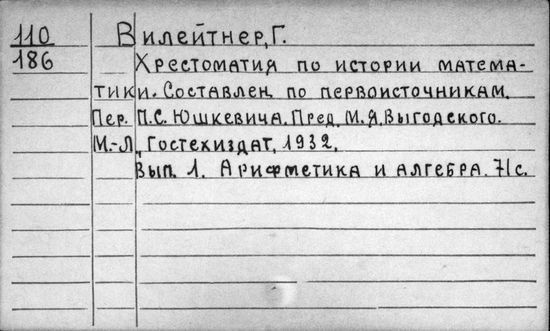 110 Вилейтнер, Г.
186 Хрестоматия по истории матема-
тики. Составлен по первоисточникам.
Пер. П.С. Юшкевича. Пред. М.Я. Выгодского.
М.-Л., Гостехиздат, 1932.
Вып. 1. Арифметика и алгебра. 71с.